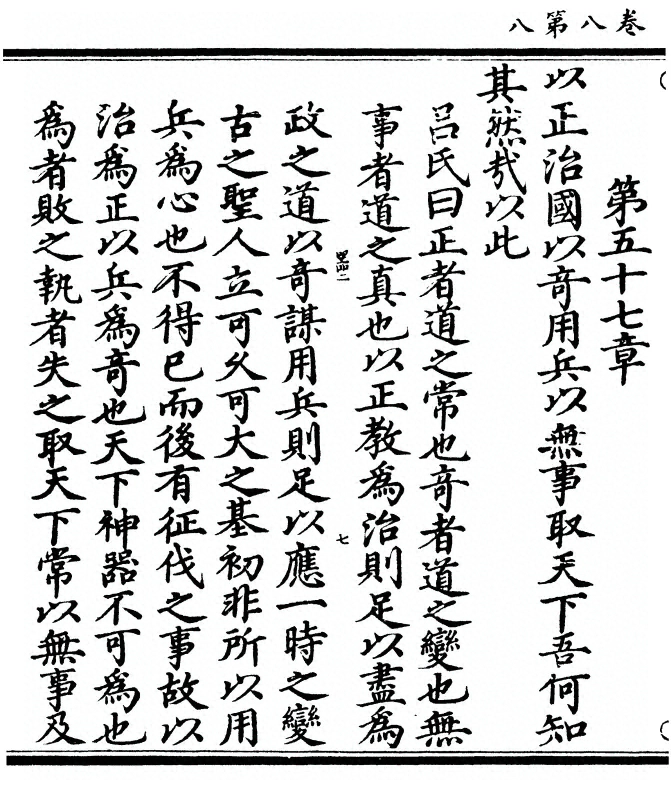 卷八第八
第五十七章
以正治國以竒用兵以無事取天下吾何知
其然㢤以此
吕氏曰正者道之常也竒者道之變也無
事者道之真也以正教為治則足以盡為
政之道以竒謀用兵則足以應一時之變
古之聖人立可久可大之基初非所以用
兵為心也不得已而後有征伐之事故以
治為正以兵為竒也天下神器不可為也
為者敗之執者失之取天下常以無事及
七